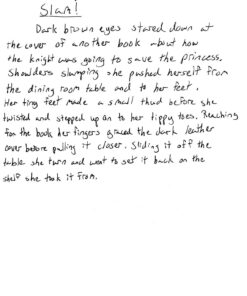 Slam!
Dark brown eyes stared down at
the cover of another book about how
the knight was going to save the princess.
Shoulders slumping she pushed herself from
the dining room table and to her feet.
Her tiny feet made a small thud before she
twisted and stepped up on to her tippy toes. Reaching
for the book her fingers grazed the dark leather
cover before pulling it closer. Sliding it off the
table she turn and went to set it back on the
shelf she took it from.